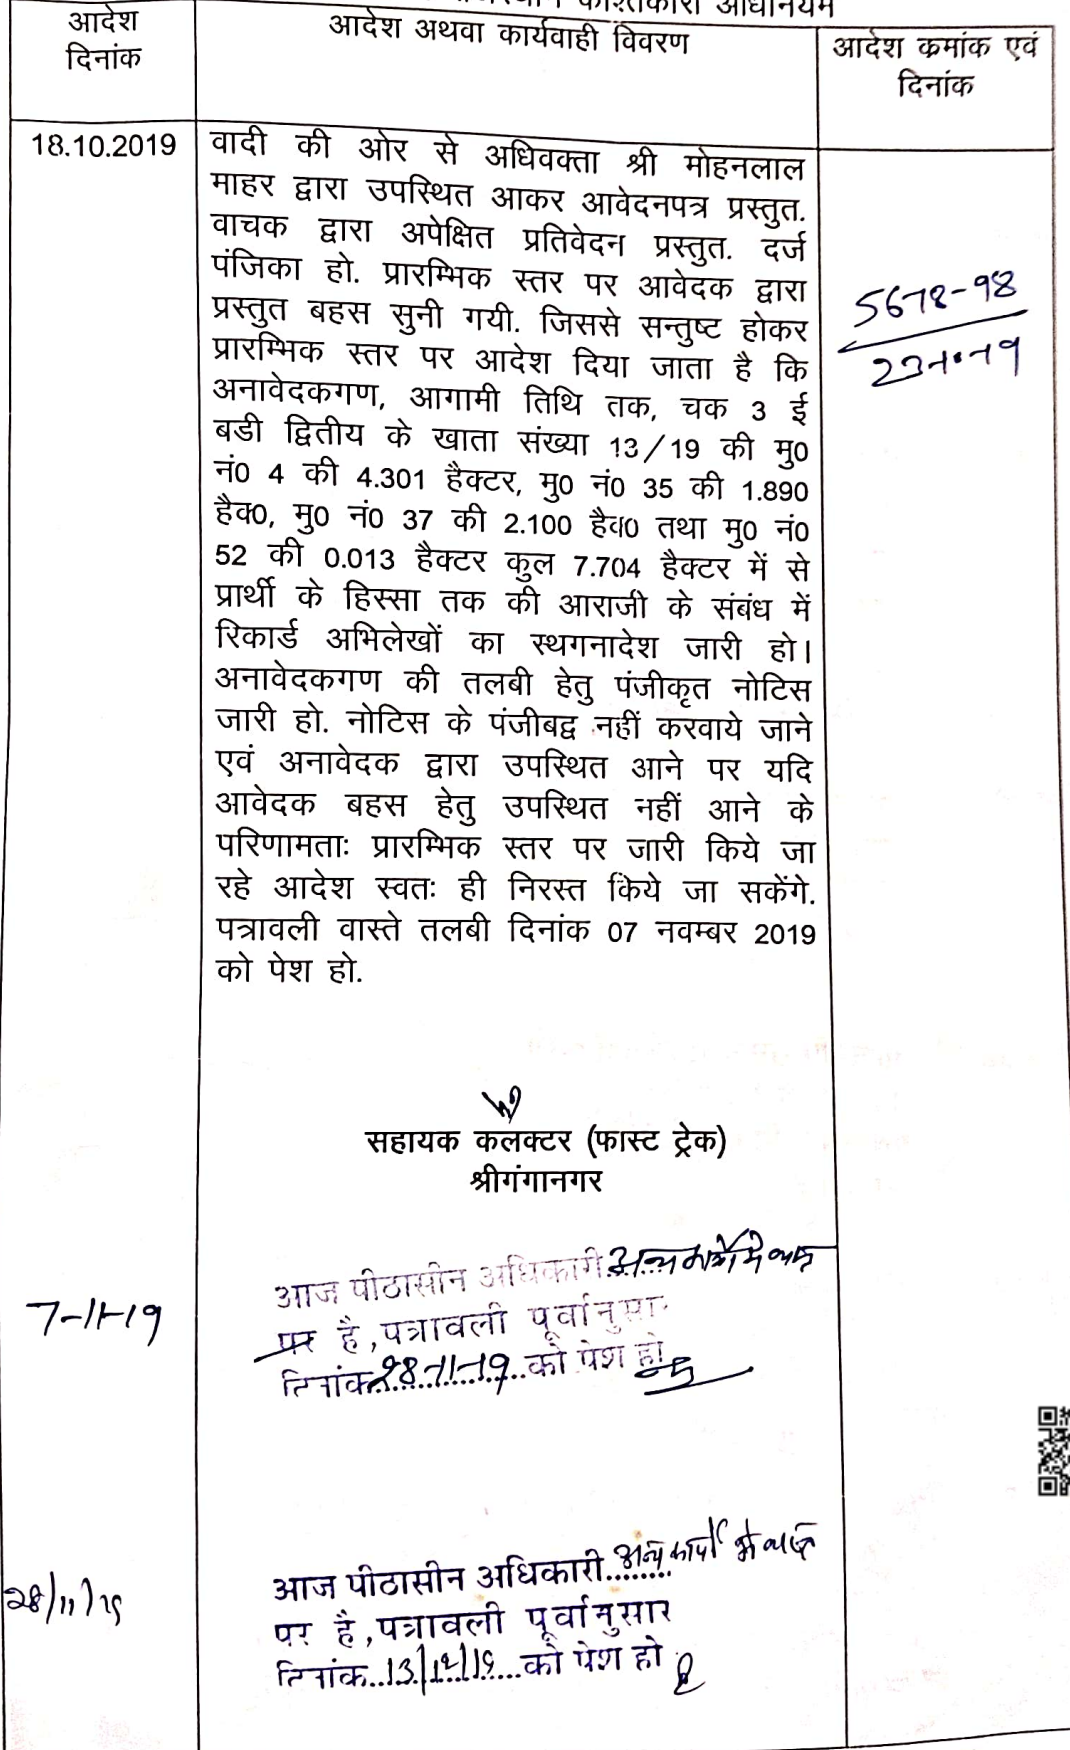 काश्तकारी अधिनियम
आदेश
दिनांक
आदेश अथवा कार्यवाही विवरण
आदेश क्रमांक एवं
दिनांक
18.10.2019
वादी की ओर से अधिवक्ता श्री मोहनलाल
माहर द्वारा उपस्थित आकर आवेदनपत्र प्रस्तुत.
वाचक द्वारा अपेक्षित प्रतिवेदन प्रस्तुत. दर्ज
पंजिका हो. प्रारम्भिक स्तर पर आवेदक द्वारा
प्रस्तुत बहस सुनी गयी. जिससे सन्तुष्ट होकर
प्रारम्भिक स्तर पर आदेश दिया जाता है कि
अनावेदकगण, आगामी तिथि तक, चक 3 ई
बडी द्वितीय के खाता संख्या 13/19 की मु0
नं0 4 की 4.301 हैक्टर, मु0 नं0 35 की 1.890
हैक0, मु0 नं0 37 की 2.100 हैक0 तथा मु0 नं0
52 की 0.013 हैक्टर कुल 7.704 हैक्टर में से
प्रार्थी के हिस्सा तक की आराजी के संबंध में
रिकार्ड अभिलेखों का स्थगनादेश जारी हो।
अनावेदकगण की तलबी हेतु पंजीकृत नोटिस
जारी हो. नोटिस के पंजीबद्व नहीं करवाये जाने
एवं अनावेदक द्वारा उपस्थित आने पर यदि
आवेदक बहस हेतु उपस्थित नहीं आने के
परिणामताः प्रारम्भिक स्तर पर जारी किये जा
रहे आदेश स्वतः ही निरस्त किये जा सकेंगे.
पत्रावली वास्ते तलबी दिनांक 07 नवम्बर 2019
को पेश हो.
5678-98
सहायक कलक्टर (फास्ट ट्रेक)
श्रीगंगानगर
7-11-19
आज पीठासीन अधिकारी अन्य कार्यो मे व्यस्त
पर है, पत्रावली पूर्वानुसार
दिनांक 28-11-19 को पेश हो
28/11/19
आज पीठासीन अधिकारी अन्य कार्यो मे व्यस्त
पर है, पत्रावली पूर्वानुसार
दिनांक 13/12/19 को पेश हो